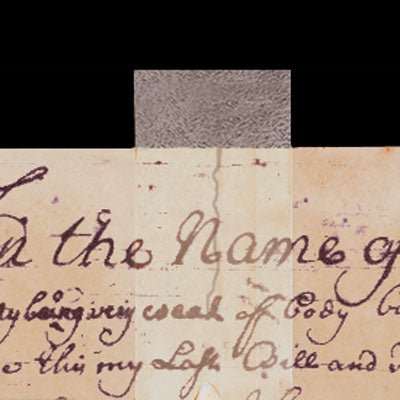 the Name
being very weak off body
this my Last Will and